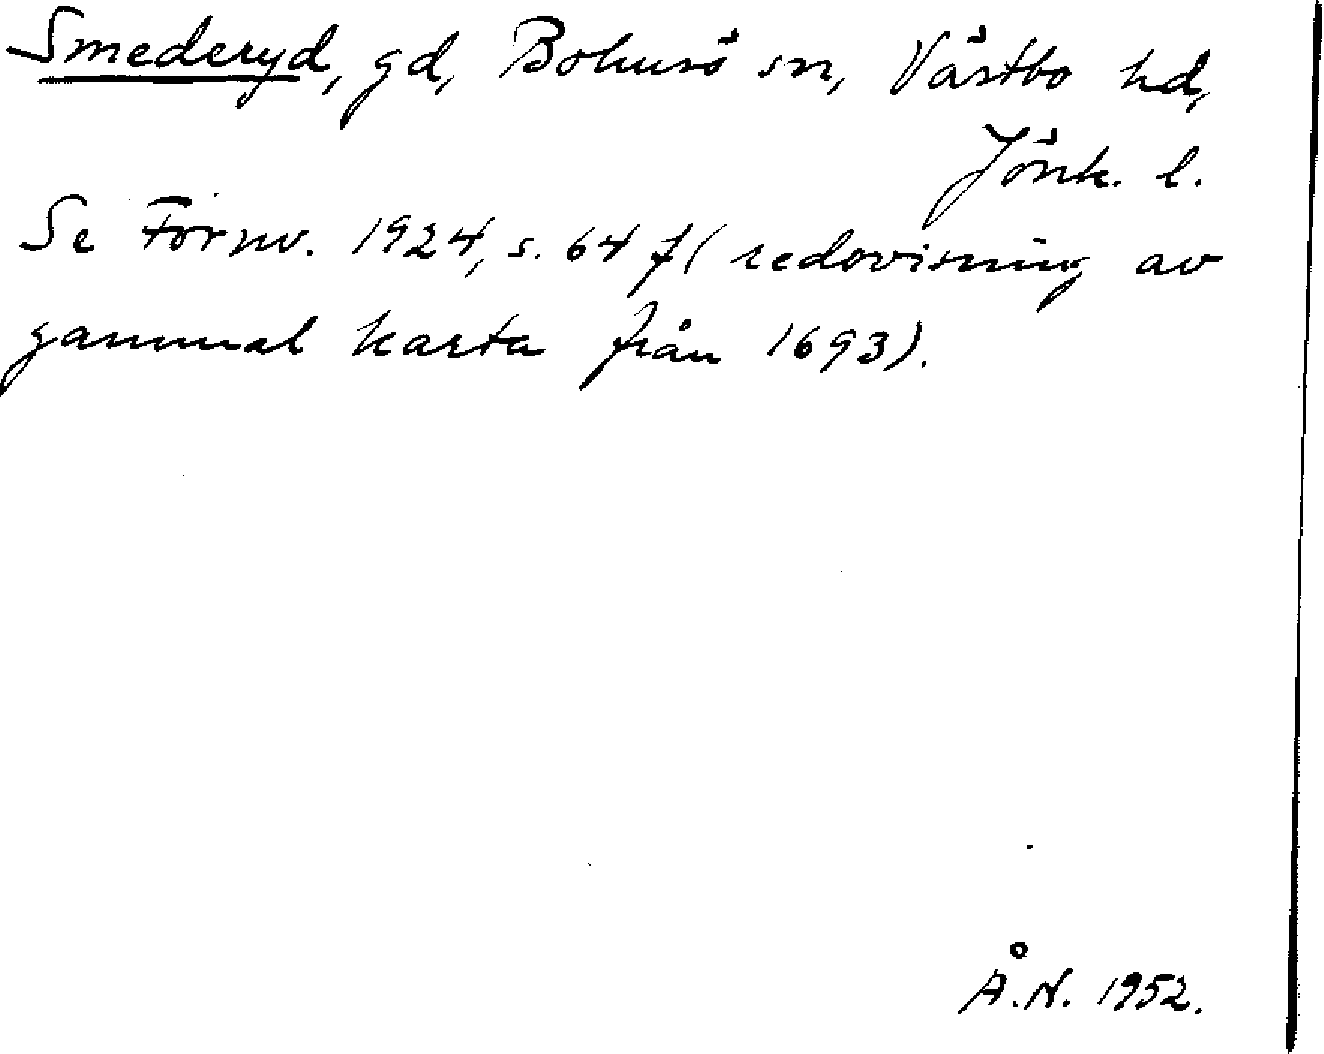 Smederyd, gd, Bolmsö sn, Västbo hd,
Jönk. l.
Se Fornv. 1924, s. 64 f (redovisning av
gammal karta från 1693).
Å.N. 1952.